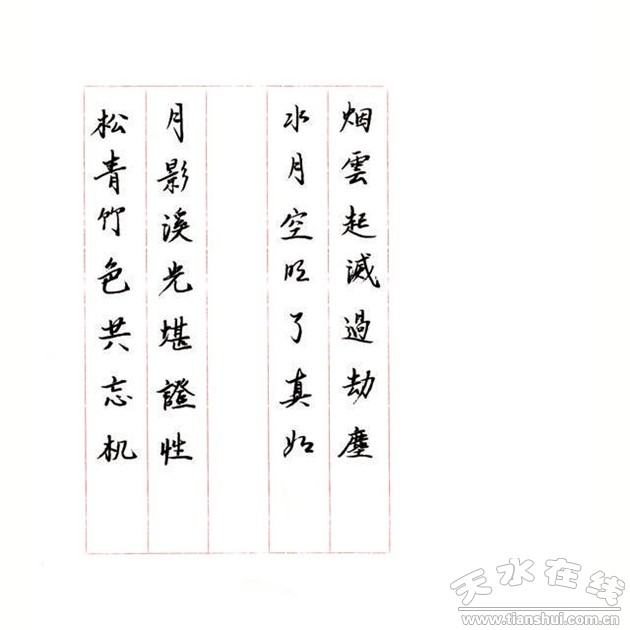 烟雲起滅過劫塵
水月空明了真如
月影溪光堪證性
松青竹色共忘机
天水在线
www.tianshui.com.cn